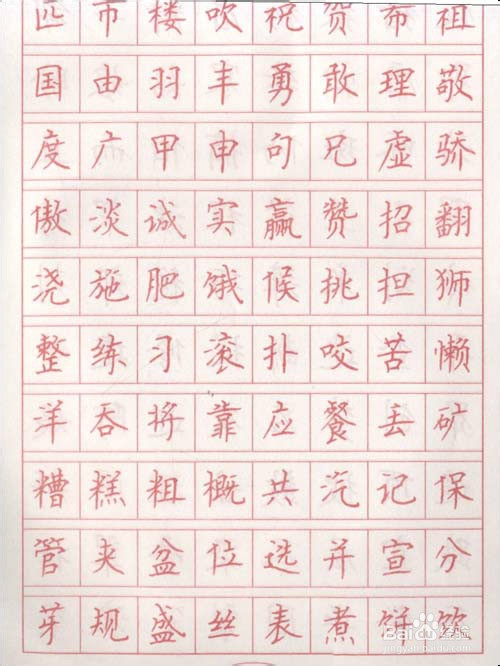 匹 币 楼 吹 祝 贺 布 祖
国 由 羽 丰 勇 敢 理 敬
度 广 甲 申 句 兄 虚 骄
傲 淡 诚 实 赢 赞 招 翻
浇 施 肥 饿 候 挑 担 狮
整 练 习 滚 扑 咬 苦 懒
洋 吞 将 靠 应 餐 丢 矿
糟 糕 粗 概 共 汽 记 保
管 夹 盆 位 选 并 宣 分
芽 规 盛 丝 表 煮 饼 饮
Baidu 经验
jingyan.baidu.com